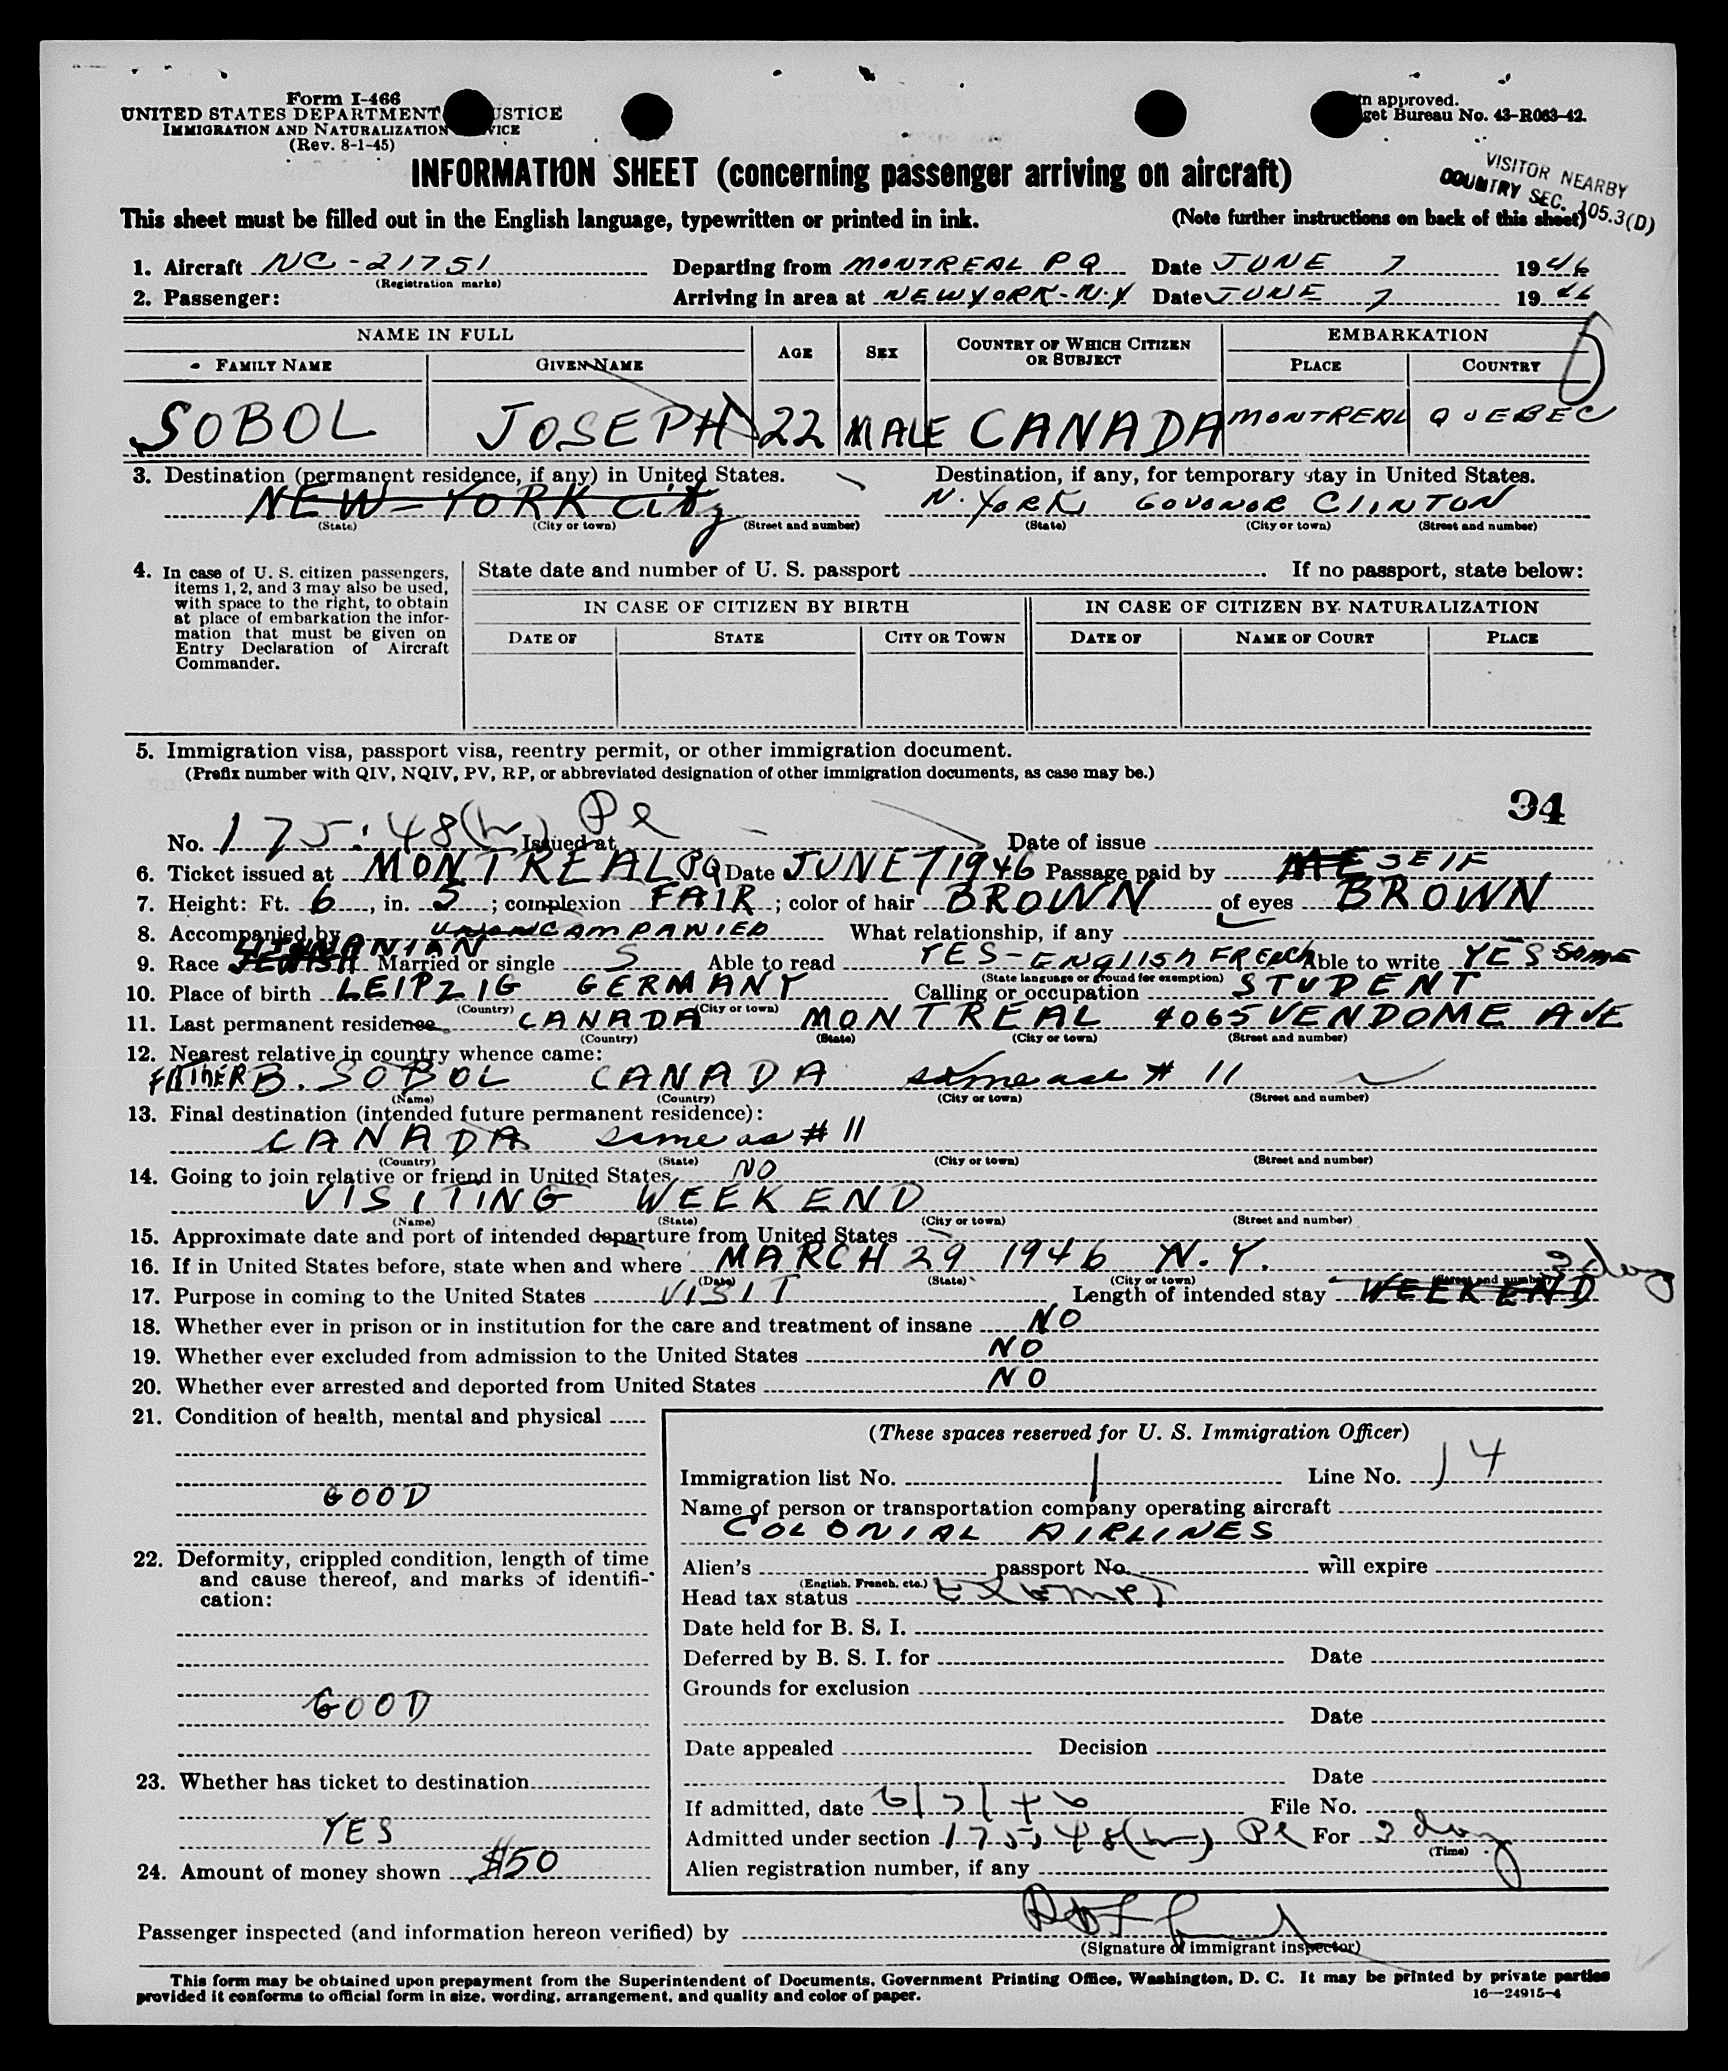 Form I-466
UNITED STATES DEPARTMENT JUSTICE
IMMIGRATION AND NATURALIZATION SERVICE
(Rev. 8-1-45)
approved.
Bureau No. 43-R063-42.
INFORMATION SHEET (concerning passenger arriving on aircraft)
VISITOR NEARBY
COUNTRY SEC. 105.3(D)
This sheet must be filled out in the English language, typewritten or printed in ink. (Note further instructions on back of this sheet)
1. Aircraft NC-21751 Departing from MONTREAL PQ Date JUNE 7 1946
(Registration marks)
2. Passenger: Arriving in area at NEW YORK-N.Y Date JUNE 7 1946
NAME IN FULL AGE SEX COUNTRY OF WHICH CITIZEN OR SUBJECT EMBARKATION
FAMILY NAME GIVEN NAME PLACE COUNTRY
SOBOL JOSEPH 22 MALE CANADA MONTREAL QUEBEC
3. Destination (permanent residence, if any) in United States. Destination, if any, for temporary stay in United States.
NEW-YORK City N. YORK GOVONOR CLINTON
(State) (City or town) (Street and number) (State) (City or town) (Street and number)
4. In case of U. S. citizen passengers, items 1, 2, and 3 may also be used, with space to the right, to obtain at place of embarkation the information that must be given on Entry Declaration of Aircraft Commander.
State date and number of U. S. passport . If no passport, state below:
IN CASE OF CITIZEN BY BIRTH IN CASE OF CITIZEN BY NATURALIZATION
DATE OF STATE CITY OR TOWN DATE OF NAME OF COURT PLACE
5. Immigration visa, passport visa, reentry permit, or other immigration document.
(Prefix number with QIV, NQIV, PV, RP, or abbreviated designation of other immigration documents, as case may be.)
34
No. 175.48 Pl Issued at Date of issue
6. Ticket issued at MONTREAL PQ Date JUNE 7 1946 Passage paid by ME SELF
7. Height: Ft. 6, in. 5; complexion FAIR; color of hair BROWN of eyes BROWN
8. Accompanied by UNACCAMPANIED What relationship, if any
LITHUANIAN
9. Race JEWISH Married or single S Able to read YES-ENGLISH FRENCH Able to write YES SAME
(State language or ground for exemption)
10. Place of birth LEIPZIG GERMANY Calling or occupation STUDENT
(Country) (City or town)
11. Last permanent residence CANADA MONTREAL 4065 VENDOME AVE
(Country) (State) (City or town) (Street and number)
12. Nearest relative in country whence came:
FATHER B. SOBOL CANADA same as # 11
(Name) (Country) (City or town) (Street and number)
13. Final destination (intended future permanent residence):
CANADA same as # 11
(Country) (State) (City or town) (Street and number)
14. Going to join relative or friend in United States NO
VISITING WEEKEND
(Name) (State) (City or town) (Street and number)
15. Approximate date and port of intended departure from United States
16. If in United States before, state when and where MARCH 29 1946 N.Y.
(Date) (State) (City or town) (Street and number)
17. Purpose in coming to the United States VISIT Length of intended stay WEEKEND 3 day
18. Whether ever in prison or in institution for the care and treatment of insane NO
19. Whether ever excluded from admission to the United States NO
20. Whether ever arrested and deported from United States NO
21. Condition of health, mental and physical
GOOD
22. Deformity, crippled condition, length of time and cause thereof, and marks of identification:
GOOD
23. Whether has ticket to destination
YES
24. Amount of money shown $50
(These spaces reserved for U. S. Immigration Officer)
Immigration list No. 1 Line No. 14
Name of person or transportation company operating aircraft
COLONIAL AIRLINES
Alien's passport No. will expire
(English, French, etc.)
Head tax status Exempt
Date held for B. S. I.
Deferred by B. S. I. for Date
Grounds for exclusion
Date
Date appealed Decision
Date
If admitted, date 6/7/46 File No.
Admitted under section 175.48 Pl For 3 day
(Time)
Alien registration number, if any
Passenger inspected (and information hereon verified) by
(Signature of immigrant inspector)
This form may be obtained upon prepayment from the Superintendent of Documents, Government Printing Office, Washington, D. C. It may be printed by private parties
provided it conforms to official form in size, wording, arrangement, and quality and color of paper.
16—24915-4